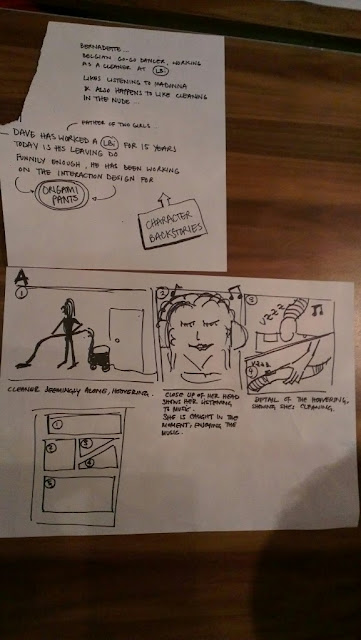 BERNADETTE...
BELGIAN GO-GO DANCER, WORKING
AS A CLEANER AT LBi
LIKES LISTENING TO MADONNA
& ALSO HAPPENS TO LIKE CLEANING
IN THE NUDE...
FATHER OF TWO GIRLS...
DAVE HAS WORKED @ LBi FOR 15 YEARS
TODAY IS HIS LEAVING DO
FUNNILY ENOUGH, HE HAS BEEN WORKING
ON THE INTERACTION DESIGN FOR
ORIGAMI
PANTS
CHARACTER
BACKSTORIES
A
1
2
3
VZZZ
4
VZZZ
CLEANER SEEMINGLY ALONE, HOOVERING.
CLOSE UP OF HER HEAD
SHOWS HER LISTENING
TO MUSIC.
SHE IS CAUGHT IN THE
MOMENT, ENJOYING THE
MUSIC.
DETAIL OF THE HOOVERING,
SHOWING SHE'S CLEANING.
1
2
3
4
5